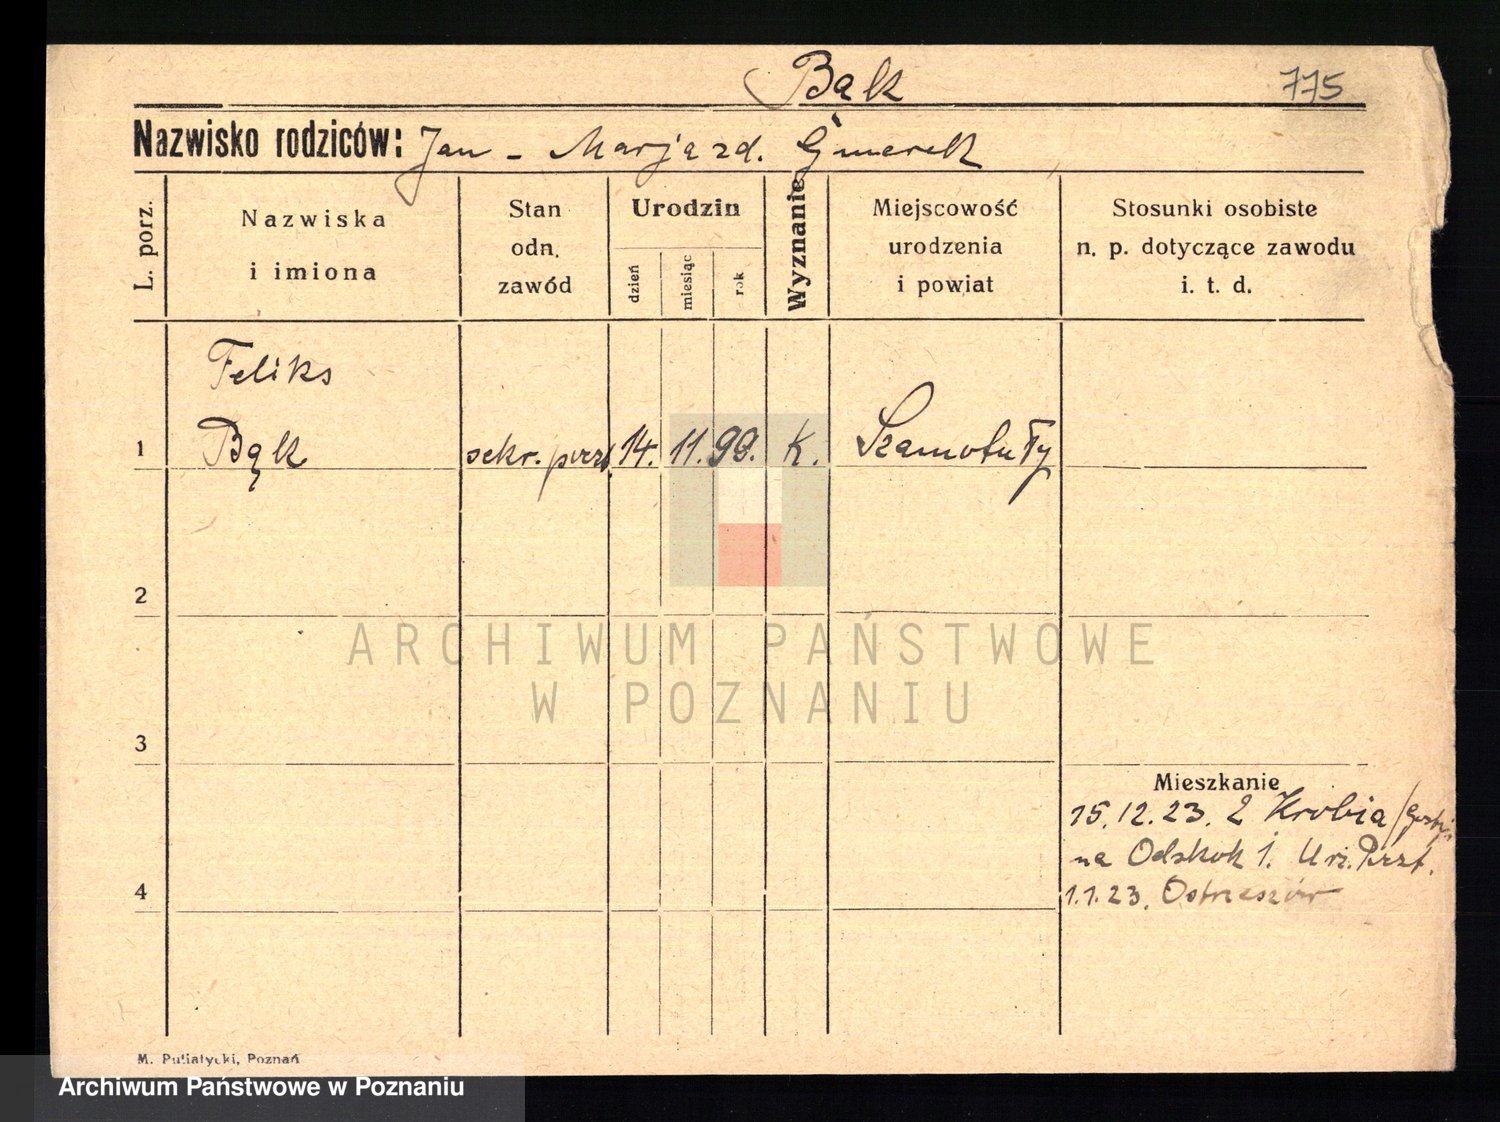 Bąk 775
Nazwisko rodziców: Jan - Marja zd.
L. porz.
Nazwiska
i imiona
Stan
odn.
zawód
Urodzin
dzień
miesiąc
rok
Wyznanie
Miejscowość
urodzenia
i powiat
Stosunki osobiste
n. p. dotyczące zawodu
i. t. d.
Feliks
1 Bąk sekr. 14. 11. K. Szamotuły
2
ARCHIWUM PAŃSTWOWE
W POZNANIU
3
Mieszkanie
15.12.23. z Krobia
na Odskok 1. Urz. Pozt.
4
1.1.23. Ostrzeszów
M. Putiatycki, Poznań
Archiwum Państwowe w Poznaniu